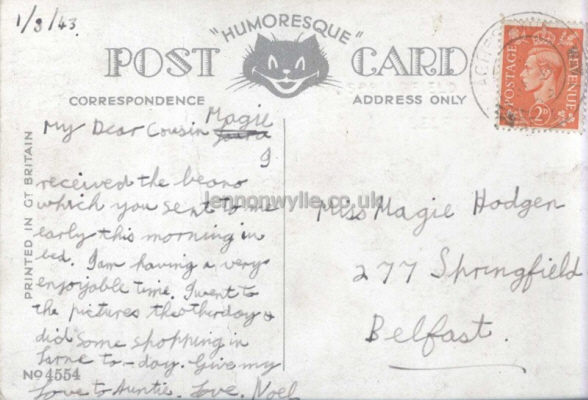 1/8/43.
"HUMORESQUE"
POST CARD
CORRESPONDENCE
ADDRESS ONLY
PRINTED IN GT BRITAIN
POSTAGE REVENUE
2D
My Dear Cousin Magie
I
received the beans
which you sent to me
early this morning in
bed. I am having a very
enjoyable time. I went to
the pictures the otherday &
did some shopping in
to-day. Give my
love to Auntie. Love, Noel
No 4554
Miss Magie Hodgen
277 Springfield
Belfast.
lennonwylie.co.uk